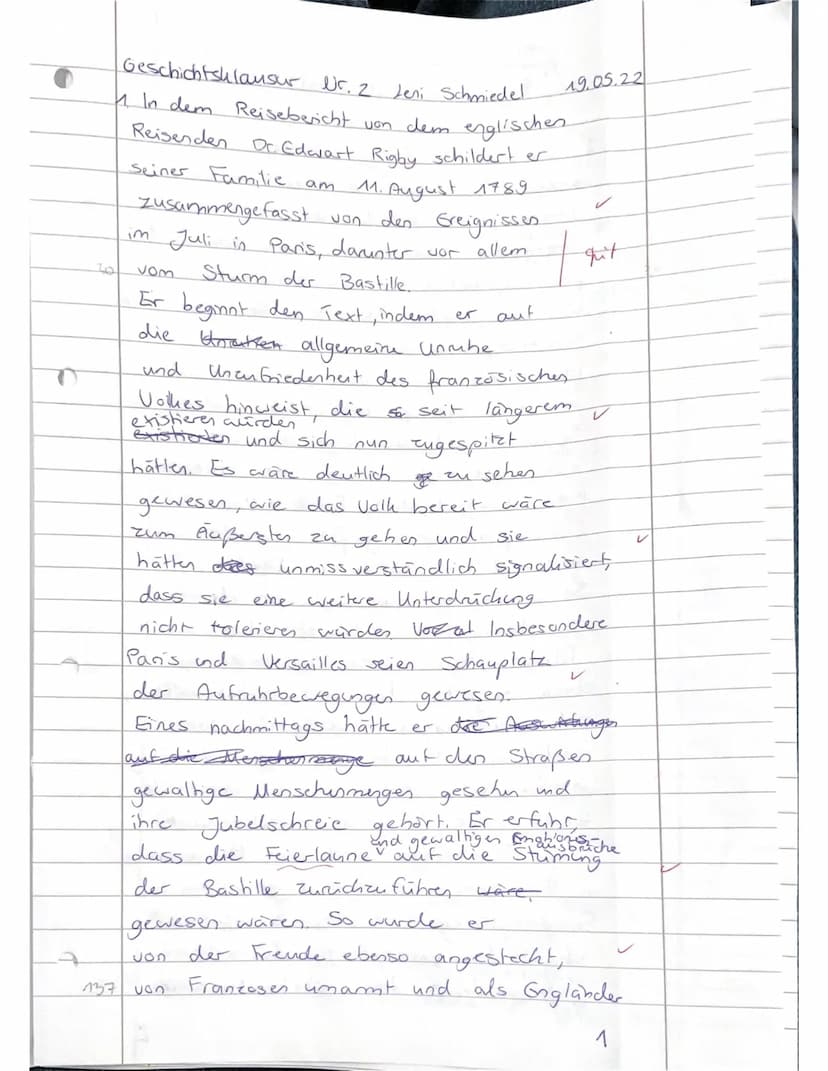 Geschichtsklausur Nr. 2 Leni Schmiedel 19.05.22
1. In dem Reisebericht von dem englischen
Reisenden Dr. Edwart Rigby schildert er
seiner Familie am 11. August 1789
zusammengefasst von den Ereignissen
im Juli in Paris, darunter vor allem gut
vom Sturm der Bastille.
Er beginnt den Text, indem er auf
die allgemeine Unruhe
und Unzufriedenheit des französischen
Volkes hinweist, die seit längerem
existieren würden
existierten und sich nun zugespitzt
hätten. Es wäre deutlich zu sehen
gewesen, wie das Volk bereit wäre
zum Äußersten zu gehen und sie
hätten dies unmissverständlich signalisiert,
dass sie eine weitere Unterdrückung
nicht tolerieren würden. Insbesondere
Paris und Versailles seien Schauplatz
der Aufruhrbewegungen gewesen.
Eines nachmittags hätte er die Auswirkungen
auf die Menschenmenge auf den Straßen
gewaltige Menschenmengen gesehen und
ihre Jubelschreie gehört. Er erfuhr,
und gewaltigen Emotionsausbrüche
dass die Feierlaune auf die Stürmung
der Bastille zurückzuführen wäre.
gewesen wären. So wurde er
von der Freude ebenso angesteckt,
137 von Franzosen umarmt und als Engländer
1